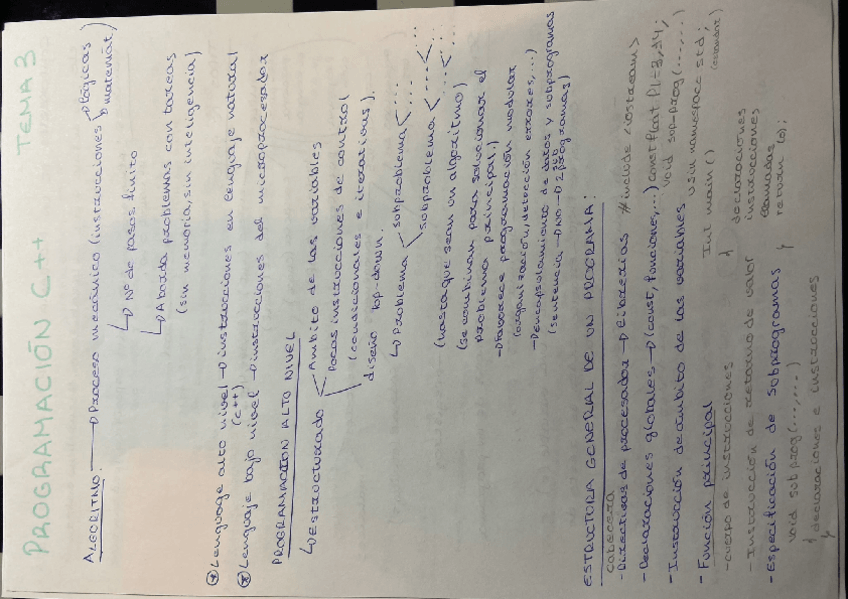 PROGRAMACIÓN C++ TEMA 3
ALGORITMO: → Proceso mecánico (instrucciones → lógicas
→ matemát.)
↳ Nº de pasos finito
↳ Aborda problemas con tareas
(sin memoria, sin inteligencia)
* Lenguage alto nivel → instrucciones en lenguaje natural
(C++)
* Lenguaje bajo nivel → instrucciones del microprocesador
PROGRAMACIÓN ALTO NIVEL
↳ ESTRUCTURADO Ámbito de las variables
Pocas instrucciones de control
(condicionales e iterativas).
diseño top-down.
↳ Problema subproblema ...
subproblema ...
(hasta que sean un algoritmo)
(se combinan para solucionar el
problema principal.)
programación modular
(organización, detección errores,...)
→ encapsulamiento de datos y subprogramas
(sentencia → NO → programas)
ESTRUCTURA GENERAL DE UN PROGRAMA:
cabecera
- Directivas de procesador → librerías #include <iostream>
- Declaraciones globales → (const, funciones,...) const float PI=3,14;
void sup-prog(...,...);
- Instrucción de ámbito de las variables using namespace std;
(estandar)
- Función principal Int main()
- cuerpo de instrucciones { declaraciones
instrucciones
- Instrucción de retorno de valor llamadas
return (0);
- Especificación de subprogramas }
void subprog(...,...)
{ declaraciones e instrucciones
}